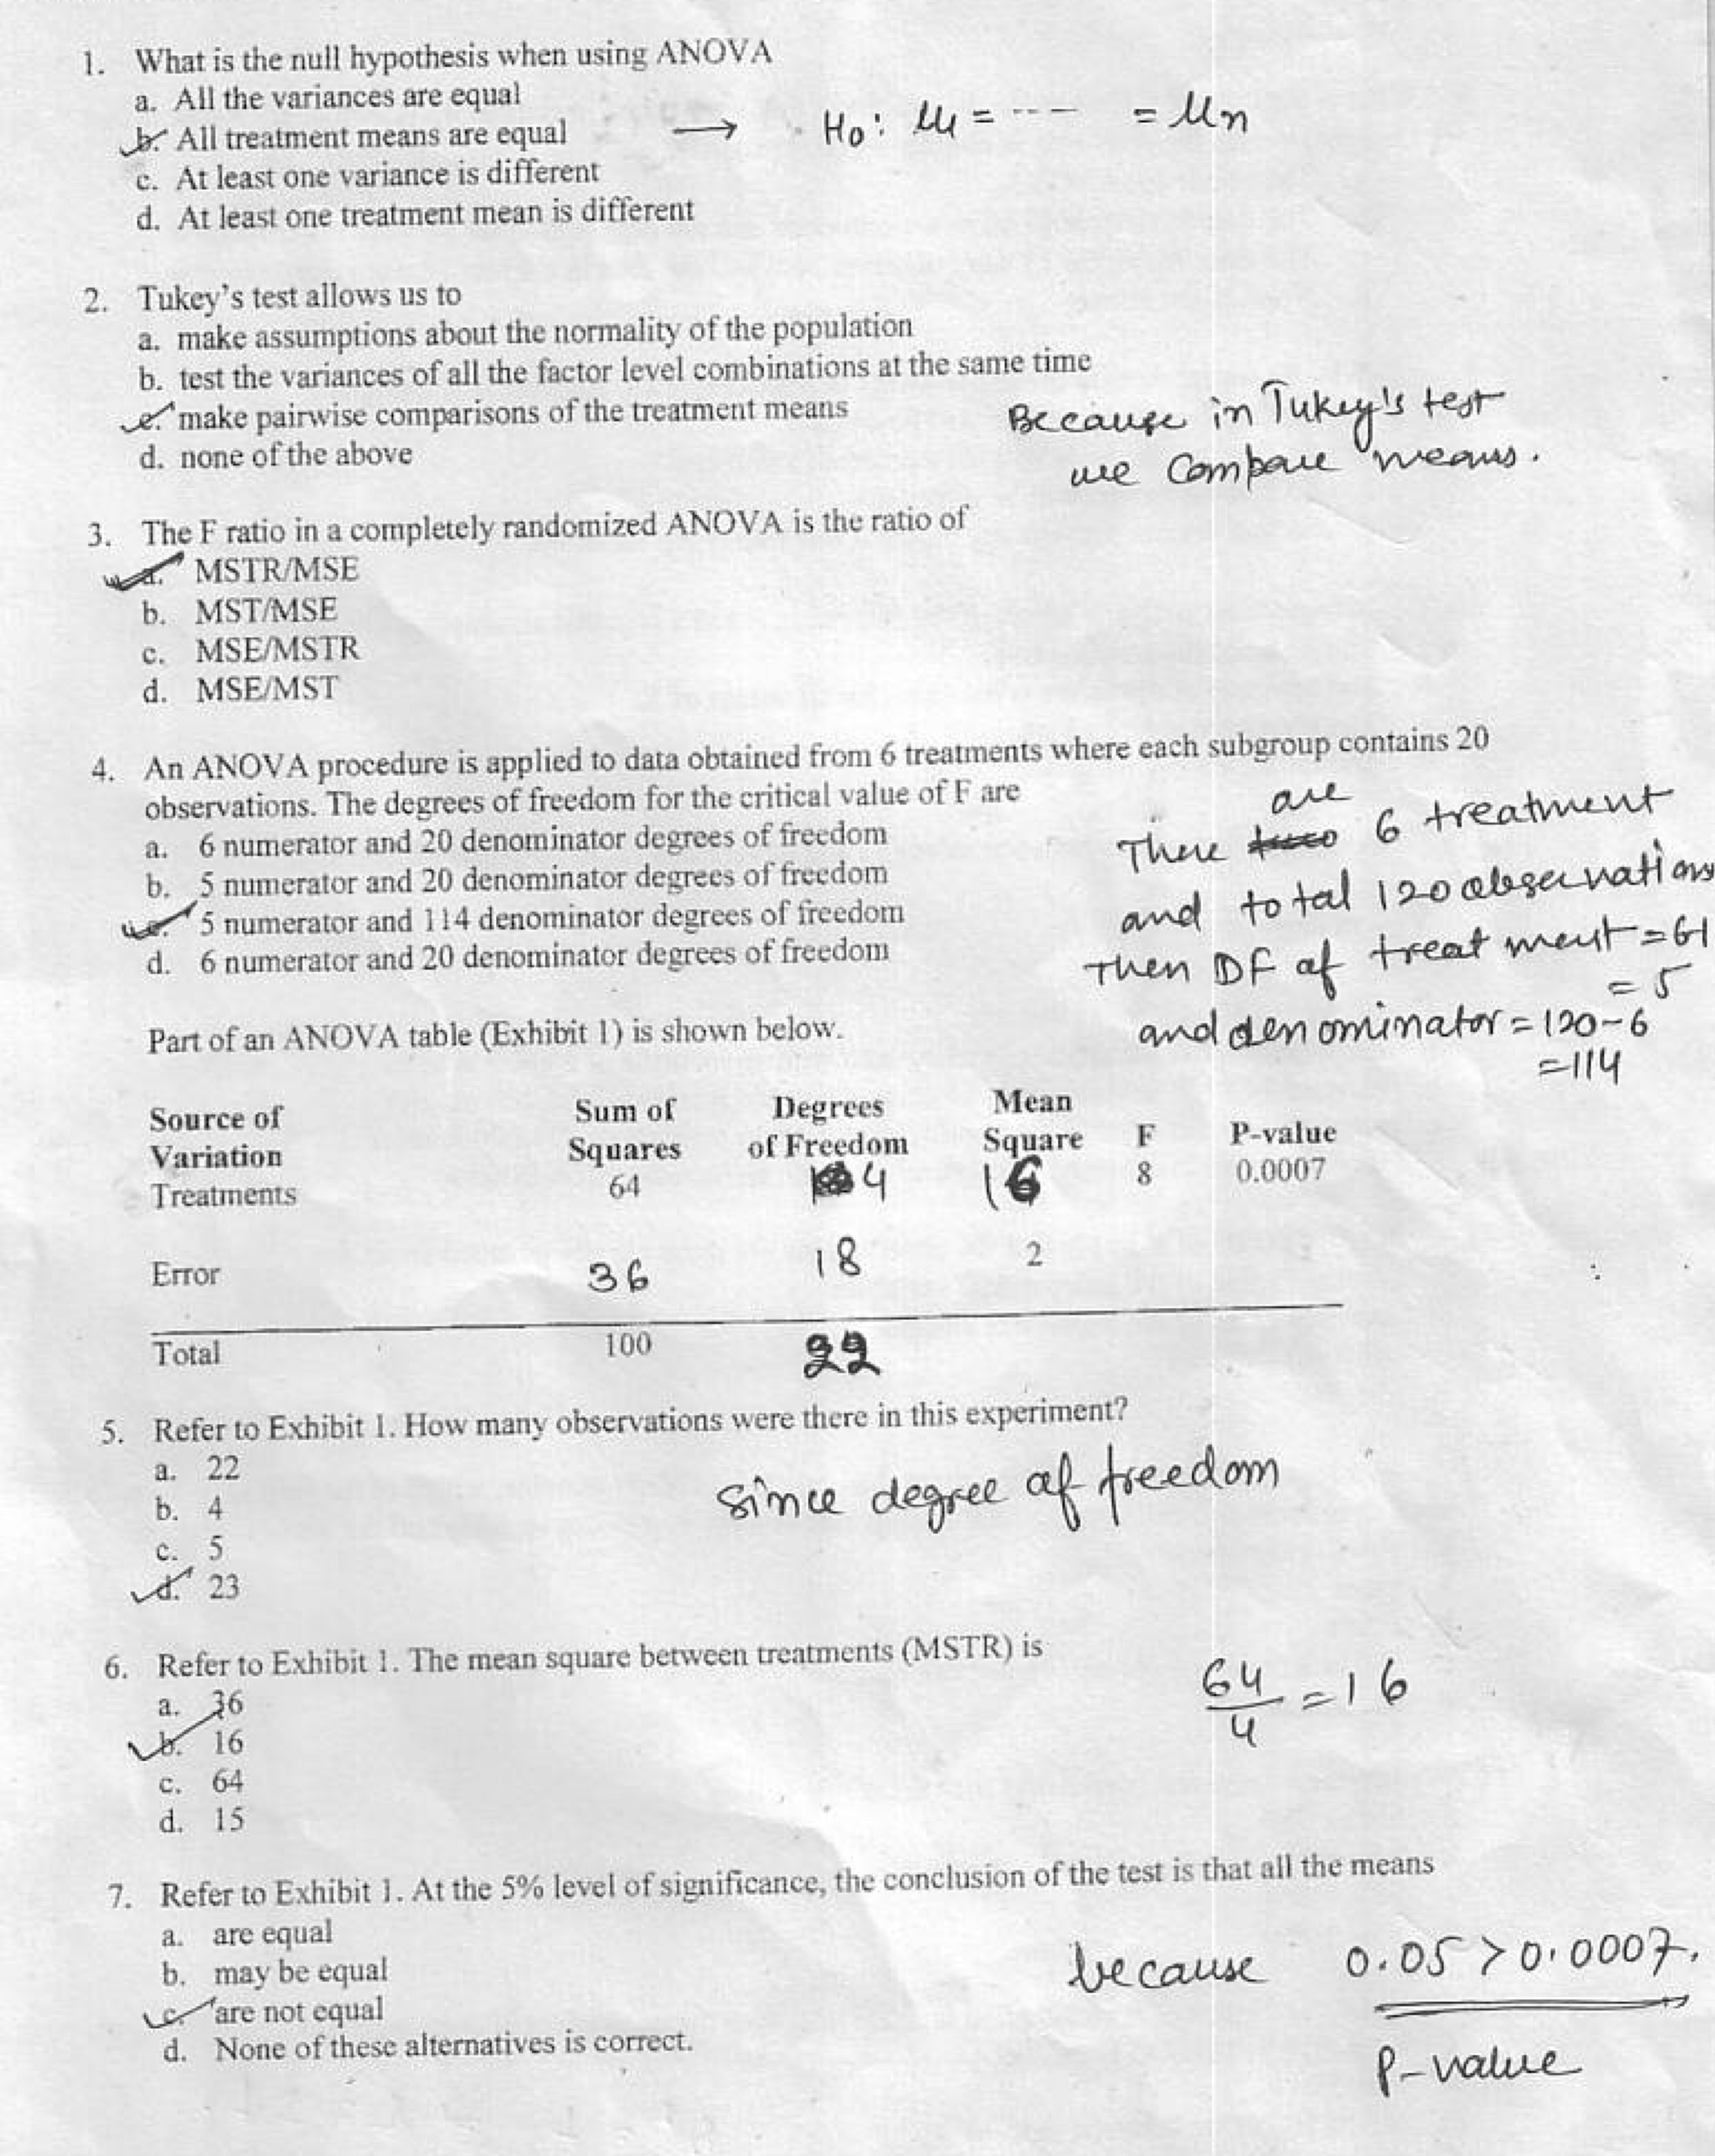 1. What is the null hypothesis when using ANOVA
a. All the variances are equal
b. All treatment means are equal → H0: μ1 = --- = μn
c. At least one variance is different
d. At least one treatment mean is different
2. Tukey's test allows us to
a. make assumptions about the normality of the population
b. test the variances of all the factor level combinations at the same time
c. make pairwise comparisons of the treatment means
Because in Tukey's test
d. none of the above
we compare means.
3. The F ratio in a completely randomized ANOVA is the ratio of
a. MSTR/MSE
b. MST/MSE
c. MSE/MSTR
d. MSE/MST
4. An ANOVA procedure is applied to data obtained from 6 treatments where each subgroup contains 20
observations. The degrees of freedom for the critical value of F are
a. 6 numerator and 20 denominator degrees of freedom
b. 5 numerator and 20 denominator degrees of freedom
c. 5 numerator and 114 denominator degrees of freedom
d. 6 numerator and 20 denominator degrees of freedom
There are 6 treatment
and total 120 observations
Then DF of treatment = 61
= 5
and denominator = 120-6
=114
Part of an ANOVA table (Exhibit 1) is shown below.
Source of Sum of Degrees Mean
Variation Squares of Freedom Square F P-value
Treatments 64 4 16 8 0.0007
Error 36 18 2
Total 100 22
5. Refer to Exhibit 1. How many observations were there in this experiment?
a. 22
b. 4
since degree of freedom
c. 5
d. 23
6. Refer to Exhibit 1. The mean square between treatments (MSTR) is
a. 36
b. 16
c. 64
d. 15
64/4 = 16
7. Refer to Exhibit 1. At the 5% level of significance, the conclusion of the test is that all the means
a. are equal
b. may be equal
c. are not equal
d. None of these alternatives is correct.
because 0.05 > 0.0007.
P-value